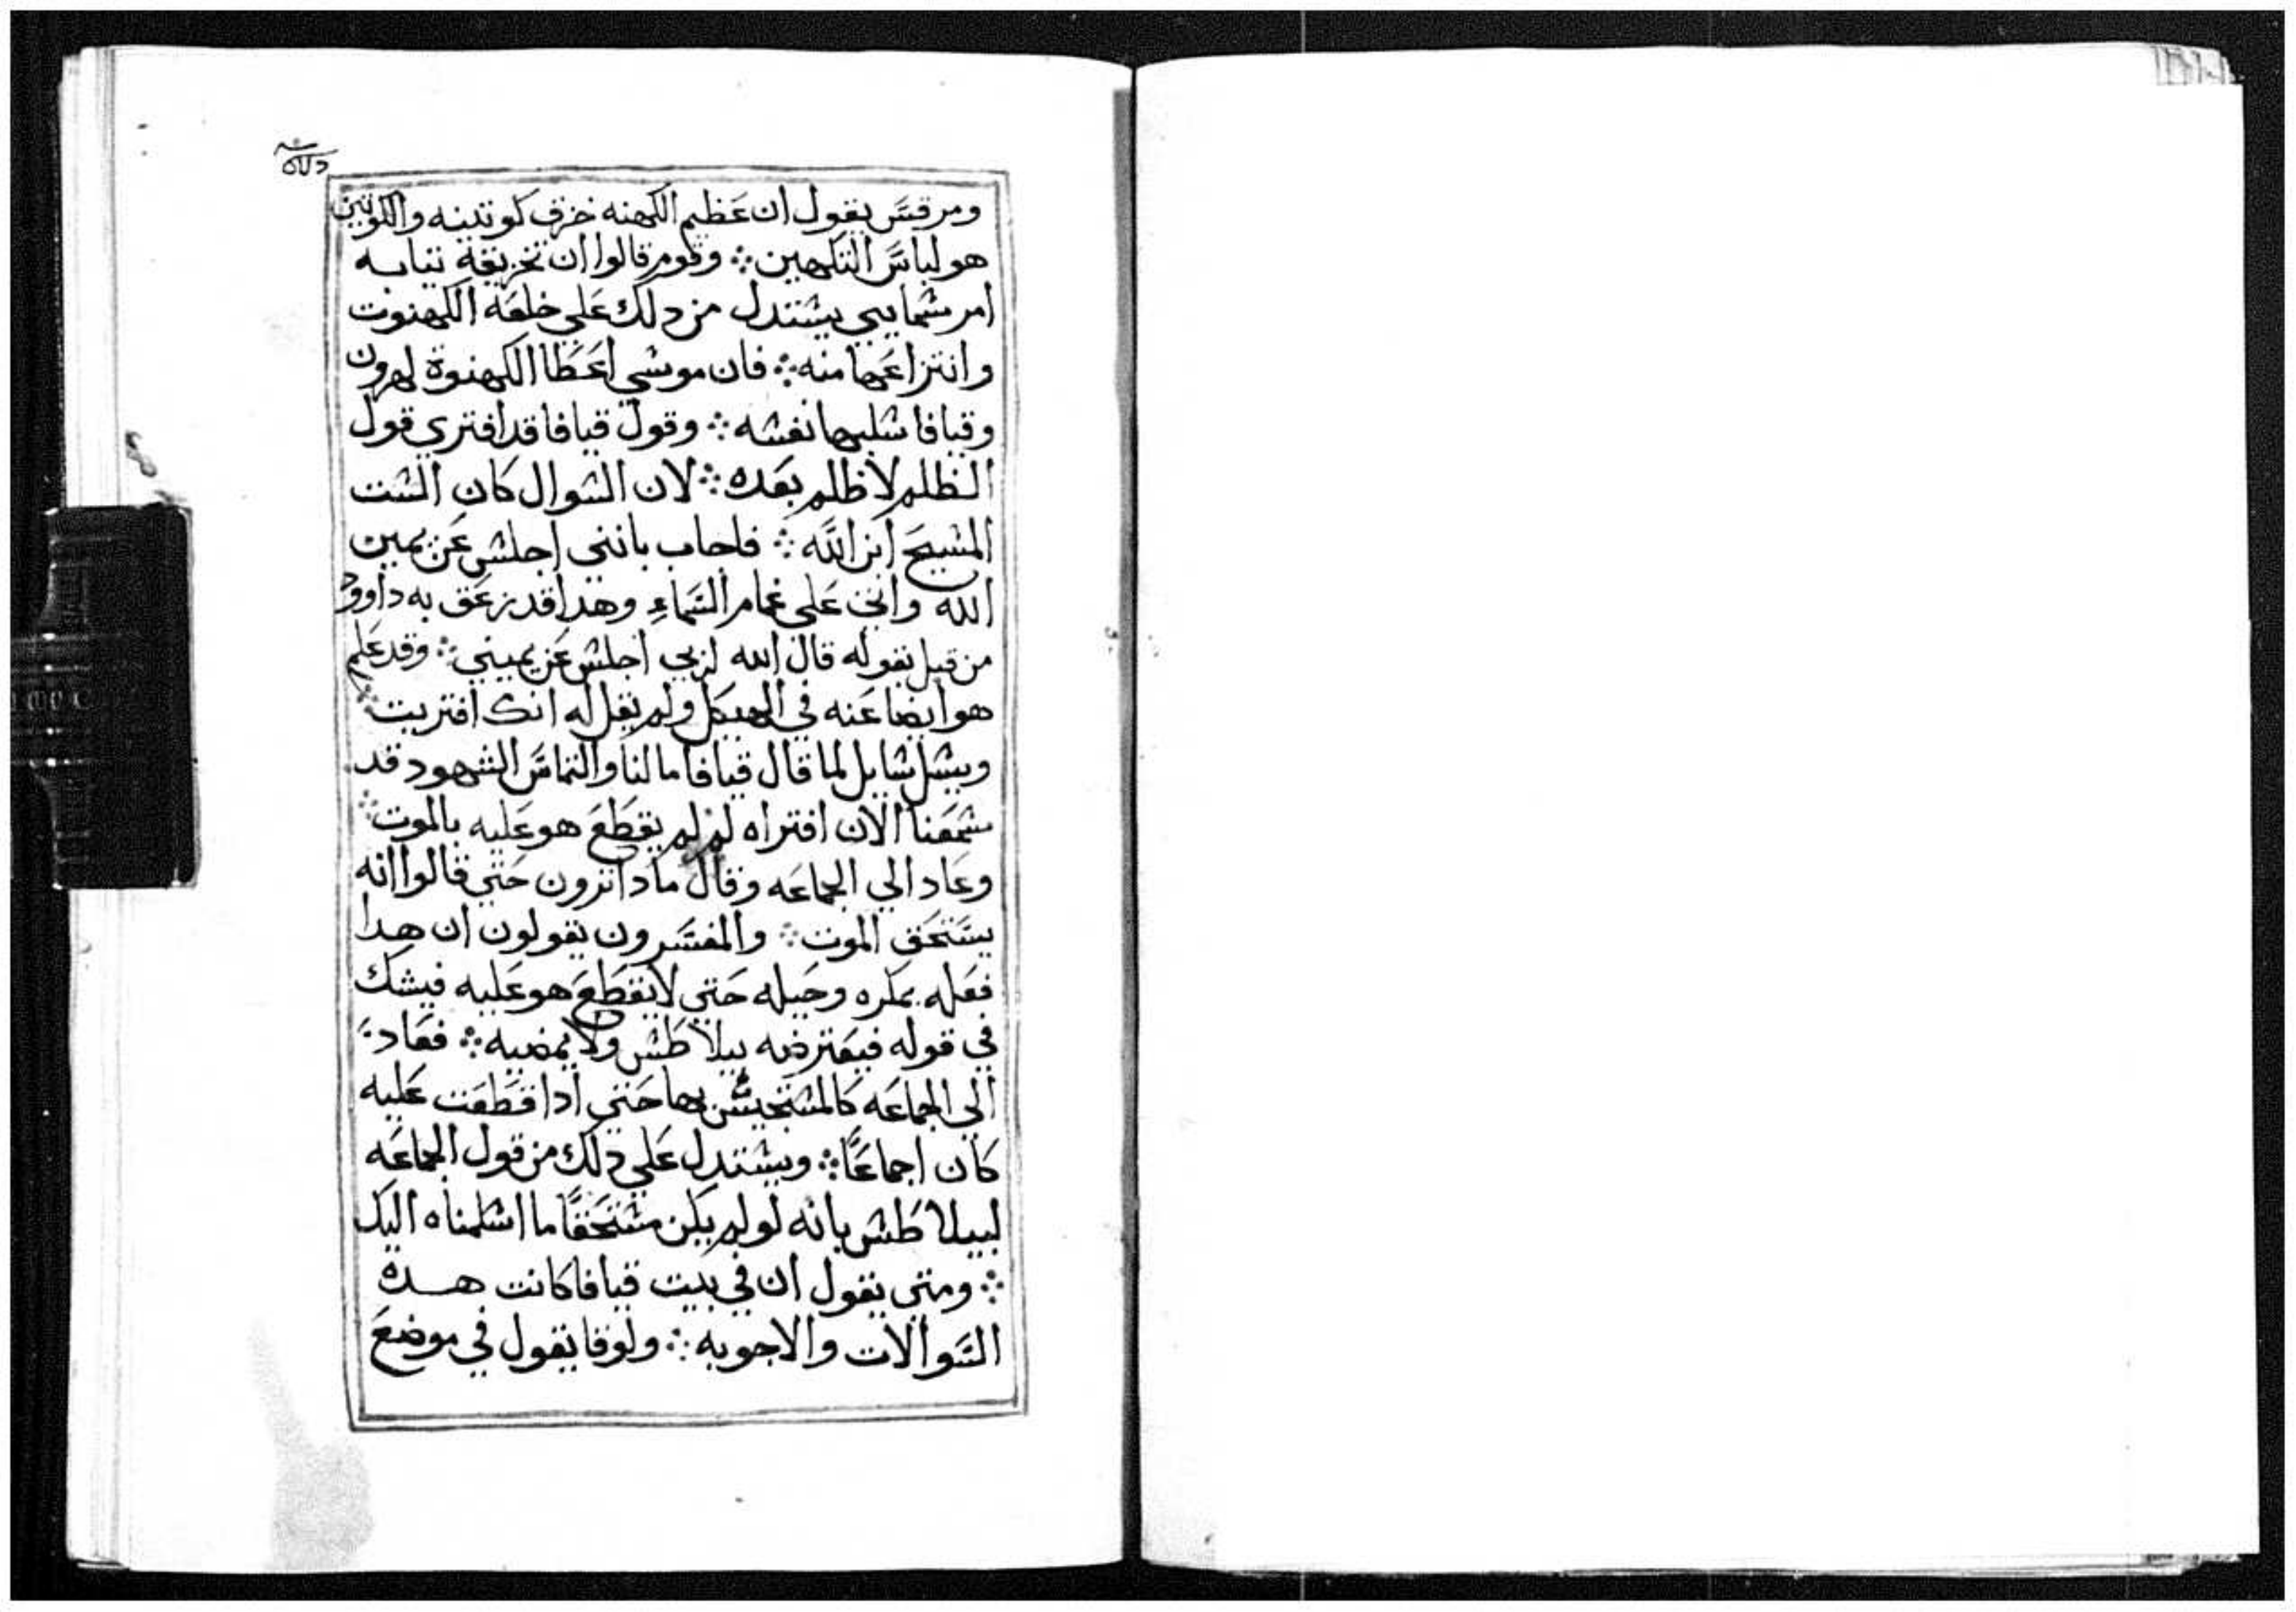 ومرقسَ يقول ان عَظيم الكهنه خزق كوتينه والكوتين
هو لباسَ التكهين ⁘ وقوم قالوا ان تخزيقه تيابه
امر شمايي يشتدل من دلك عَلي خلعَة الكهنوت
وانتزاعَها منه ⁘ فان موشي اعَطَا الكهنوة لهرون
وقيافا شلبها نفشه ⁘ وقول قيافا قد افتري قول
الظلم لا ظلم بعَده ⁘ لان الشوال كان الشت
المشيحَ ابن الله ⁘ فاجاب بانني اجلش عَن يمين
الله واتي عَلي غمام السَماءِ وهدا قد زعَق به داوود
من قبل بقوله قال الله لربي اجلش عَن يميني ⁘ وقد عَلم
هو ايضا عَنه في الهيكل ولم يقل له انك افتريت ⁘
ويشل شايل لما قال قيافا ما لنا والتماسَ الشهود قد
شمعَنا الان افتراه لم لم يقطَعَ هو عَليه بالموت ⁘
وعَاد الي الجماعَه وقال مادا ترون حَتي قالوا انه
يسَتحَق الموت ⁘ والمفسَرون يقولون ان هدا
فعَله بمكره وحَيله حَتي لا يقطَعَ هو عَليه فيشك
في قوله فيعَترضه بيلاطَش ولا يمضيه ⁘ فعَاد
الي الجماعَه كالمشتجيش بها حَتي ادا قطَعَت عَليه
كان اجماعًَا ⁘ ويشتدل عَلي دلك من قول الجماعَه
لبيلاطَش بانه لو لم يكن مشتحَقًا ما اشلمناه اليك
⁘ ومتي يقول ان في بيت قيافا كانت هده
السَوالات والاجوبه ⁘ ولوقا يقول في موضعَ